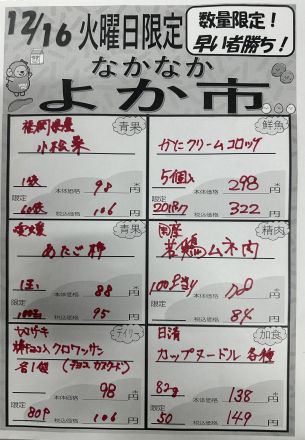 12/16 火曜日限定
数量限定！
早い者勝ち！
なかなか
よか市
青果
福岡県産
小松菜
1袋
本体価格 98 円
限定
60袋 税込価格 106
鮮魚
かにクリームコロッケ
5個入
本体価格 298 円
限定
税込価格 322
青果
あたご柿
1玉
本体価格 88 円
限定
税込価格 95
精肉
国産
若鶏ムネ肉
100g当り
本体価格 円
限定
税込価格 84
デイリー
クロワッサン
各1個 (チョコ カスタード)
98 円
限定
80 税込価格 106
加食
日清
カップヌードル 各種
82g 本体価格 138 円
限定
50 税込価格 149